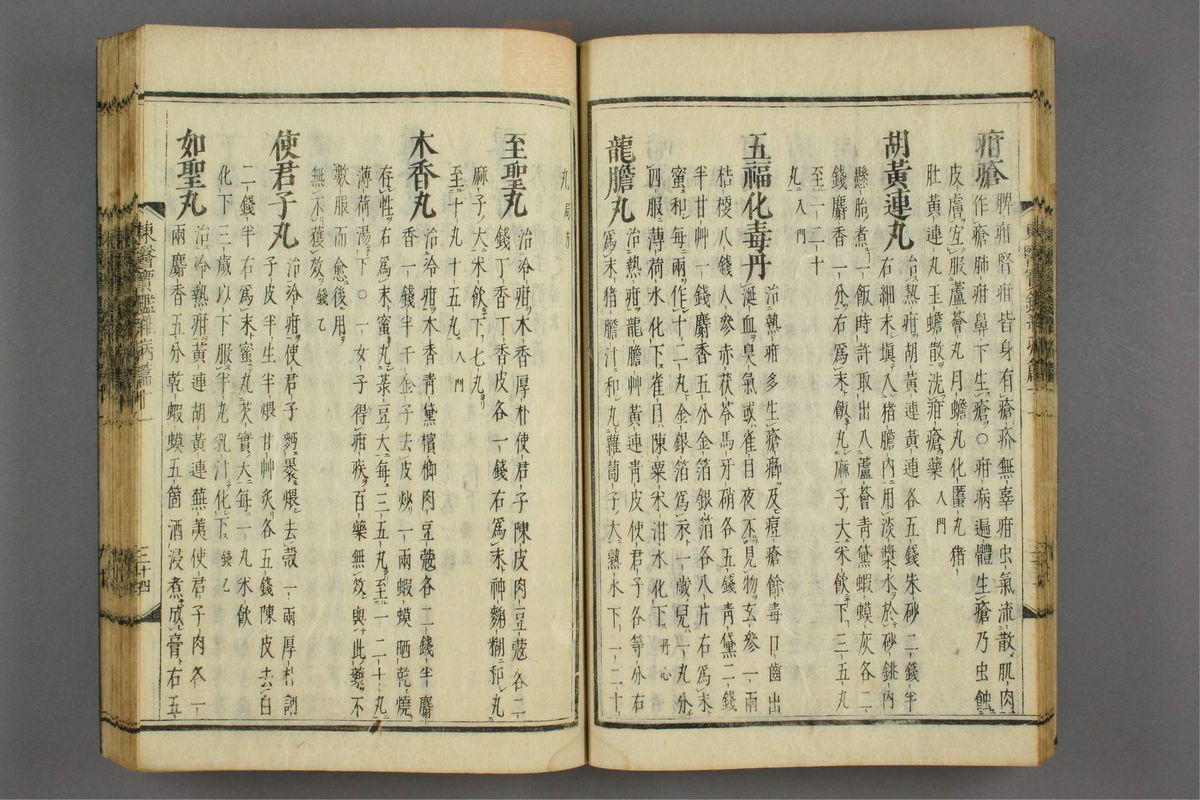 疳瘡脾疳腎疳皆身有瘡疥無辜疳虫氣流散肌肉
作瘡肺疳鼻下生瘡○疳病遍體生瘡乃虫蝕
皮膚宜服蘆薈丸月蟾丸化䘌丸猪
肚黃連丸玉蟾散洗疳瘡藥入門
胡黃連丸治熱疳胡黃連黃連各五錢朱砂二錢半
右細末塡入猪膽內用淡漿水於砂銚內
懸胎煮一飯時許取出入蘆薈靑黛蝦蟆灰各二
錢麝香一分右爲末飯丸麻子大米飮下三五丸
至一二十
丸入門
五福化毒丹治熱疳多生瘡癤及痘瘡餘毒口齒出
涎血臭氣或雀目夜不見物玄參一兩
桔梗八錢人參赤茯苓馬牙硝各五錢靑黛二錢
半甘艸一錢麝香五分金箔銀箔各八片右爲末
蜜和每兩作十二丸金銀箔爲衣一歲兒一丸分
四服薄荷水化下雀目陳粟米泔水化下丹心
龍膽丸治熱疳龍膽艸黃連靑皮使君子各等分右
爲末猪膽汁和丸蘿葍子大熟水下一二十
丸
至聖丸治冷疳木香厚朴使君子陳皮肉豆蔻各二
錢丁香丁香皮各一錢右爲末神麴糊和丸
麻子大米飮下七丸
至十丸十五丸入門
木香丸治冷疳木香靑黛檳榔肉豆蔻各二錢半麝
香一錢半千金子去皮炒一兩蝦蟆晒乾燒
存性右爲末蜜丸菉豆大每三五丸至一二十丸
薄荷湯下○一女子得疳疾百藥無效與此藥不
數服而愈後用
無不獲效錢乙
使君子丸治冷疳使君子麪裹煨去殼一兩厚朴訶
子皮半生半煨甘艸炙各五錢陳皮去白
二錢半右爲末蜜丸芡實大每一丸米飮
化下三歲以下服半丸乳汁化下錢乙
如聖丸治冷熱疳黃連胡黃連蕪荑使君子肉各一
兩麝香五分乾蝦蟆五箇酒浸煮成膏右五
東醫寶鑑雜病篇十一
三十四